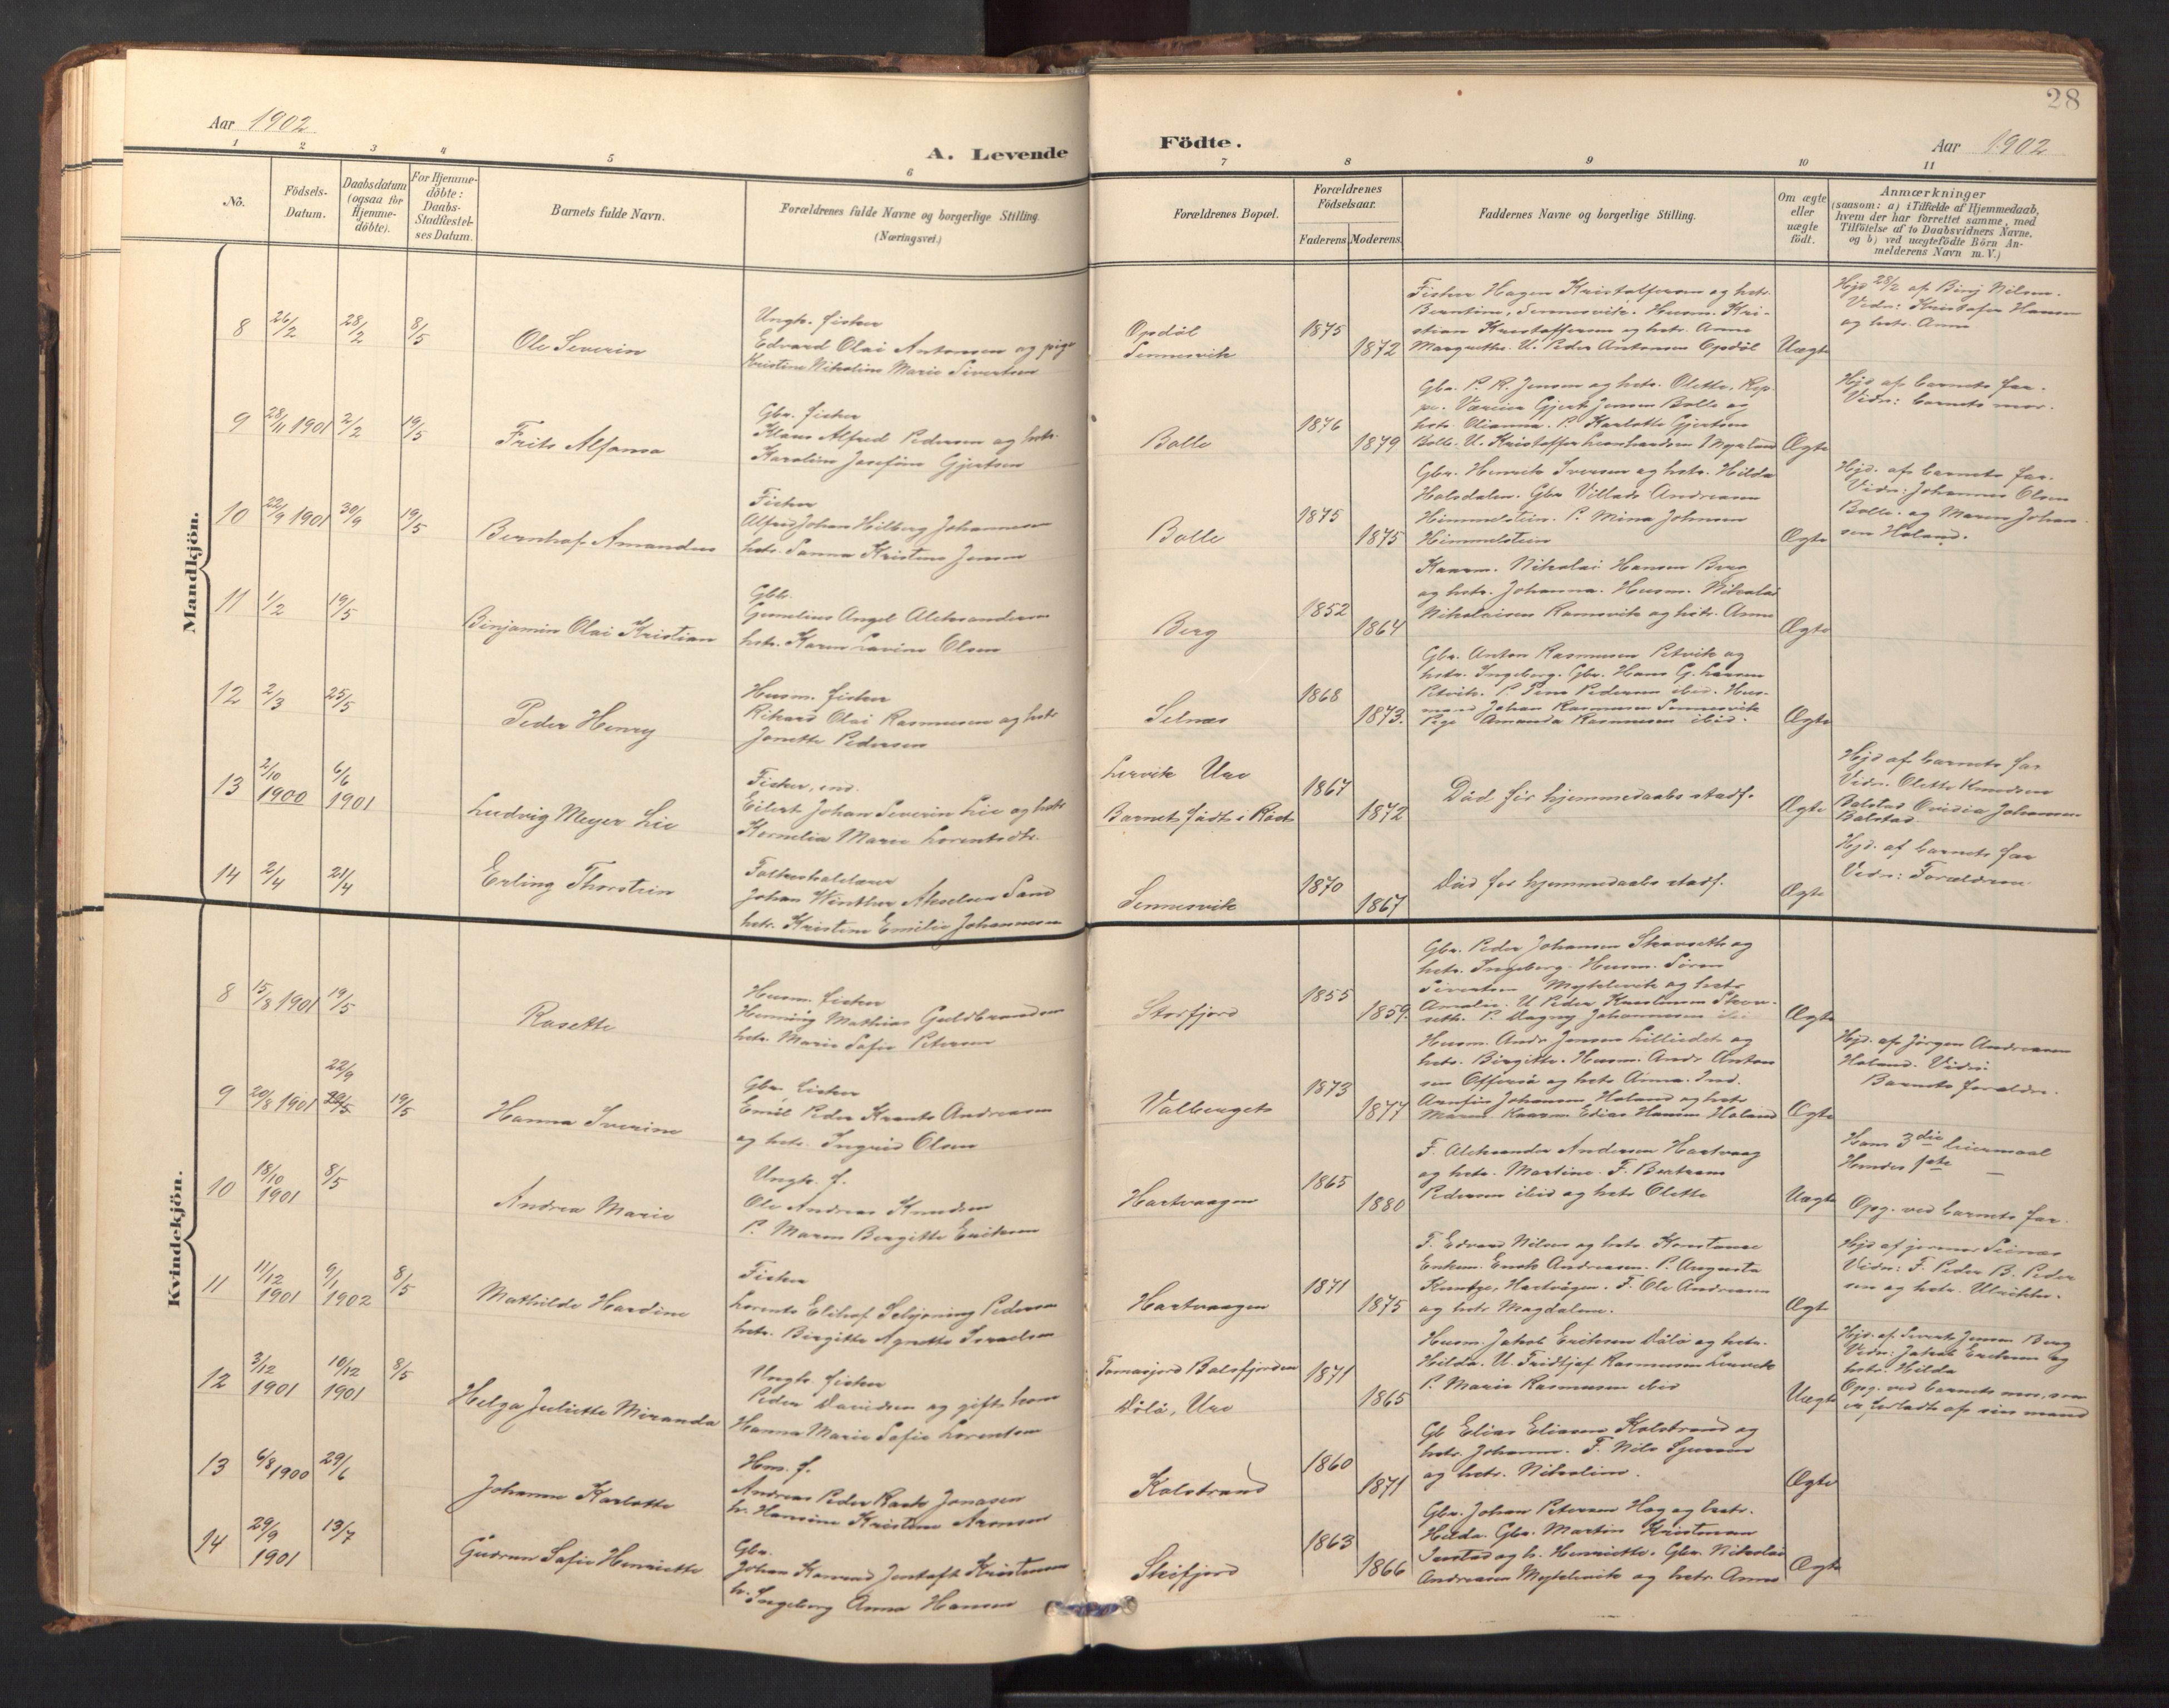 28
Aar 1902
A. Levende
Födte.
Aar 1902
1 2 3 4 5 6 7 8 9 10 11
Nö.
Födsels-
Datum.
Daabsdatum
(ogsaa for
Hjemme-
döbte).
For Hjemme-
döbte:
Daabs-
Stadfæstel-
ses Datum.
Barnets fulde Navn.
Forældrenes fulde Navne og borgerlige Stilling.
(Næringsvei.)
Forældrenes Bopæl.
Forældrenes
Födselsaar.
Faderens. Moderens.
Faddernes Navne og borgerlige Stilling.
Om ægte
eller
uægte
födt.
Anmærkninger
(saasom: a) i Tilfælde af Hjemmedaab,
hvem der har forrettet samme, med
Tilföielse af to Daabsvidners Navne,
og b) ved uægtefödte Börn An-
melderens Navn m. V.)
Mandkjön.
8 26/2 28/2 8/5
Ole Severin
Ungk. fisker
Edvard Olai Antonsen og pige
Kristine Nikoline Marie Sivertsen
Opdöl
Sennesvik
1875
1872
Fisker Hagen Kristoffersen og hstr.
Berntine, Sennesvik. Husm. Kri-
stian Kristoffersen og hstr. Anne
Margrethe. U. Peder Antonsen Opdöl
Uægte
Hjd 28/2 af Binj Nilsen.
Vidn: Kristofer Hansen
og hstr. Anna
9 28/11 1901 2/2 19/5
Frits Alfonso
Gbr. fisker
Klaus Alfred Pedersen og hstr.
Karoline Josefine Gjertsen
Bolle
1876
1879
Gbr. P. R. Jensen og hstr. Olette, Rep-
pe. Væreier Gjert Jensen Bolle og
hstr. Olianna. P. Karlotte Gjertsen
Bolle. U. Kristoffer Leonhardsen Myrland
Ægte
Hjd af barnets far.
Vidn: barnets mor.
10 22/9 1901 30/9 19/5
Bernhof Amandus
Fisker
Alfred Johan Hilberg Johannesen
hstr. Sanna Kristine Jensen
Bolle
1875
1875
Gbr. Henrik Iversen og hstr. Hilda
Holsdalen. Gbr Villads Andreasen
Himmelstein. P. Mina Johnsen
Himmelstein
Ægte
Hjd. af barnets far.
Vidn: Johannes Olsen
Bolle. og Maren Johan-
sen Holand.
11 1/2 19/5
Binjamin Olai Kristian
Gbr.
Gunelius Angel Aleksandersen
hstr. Karen Lavine Olsen
Berg
1852
1864
Kaarm. Nikolai Hansen Berg
og hstr. Johanna. Husm. Nikolai
Nikolaisen Ramsvik og hstr. Anna
Ægte
12 2/3 25/5
Peder Henry
Husm. fisker
Rikard Olai Rasmussen og hstr
Jonette Pedersen
Selnæs
1868
1873.
Gbr. Anton Rasmussen Petvik og
hstr. Ingeborg. Gbr. Hans G. Larsen
Petvik. P. Lina Pedersen ibid. Hus-
mand Johan Rasmussen Sennesvik
Pige Amanda Rasmussen ibid.
Ægte
13 2/10 1900 6/6 1901
Ludvig Meyer Lie
Fisker, ind.
Eilert Johan Severin Lie og hstr
Kornelia Marie Lorentsdtr.
Lervik Ure
Barnet födt i Röst
1867
1872
Död för hjemmedaabs stadf.
Ægte
Hjd af barnets far
Vidn. Olette Knudsen
Balstad Ovidia Johansen
Balstad
14 2/4 21/4
Erling Thorstein
Johan Winther Akselsen Sand
hstr. Kristine Emilie Johannesen
Sennesvik
1870
1867
Död for hjemmedaabs stadf.
Ægte
Hjd. af barnets far
Vidn: Forældrene.
Kvindekjön.
8 15/8 1901 19/5
Rosette
Husm. fisker
Henning Mathias Guldbrandsen
hstr. Marie Sofie Petersen
Storfjord
1855
1859.
Gbr. Peder Johansen Skovseth og
hstr. Ingeborg. Husm. Sören
Sivertsen Myklevik og hstr
Amalie. U. Peder Kristensen Skov-
seth. P. Dagny Johannesen ibi
Ægte
9 20/8 1901 22/9 19/5
Hanna Iverine
Gbr. fisker
Emil Peder Krants Andreasen
og hstr. Ingrid Olsen
Valberget
1873
1877
Husm. Andr Jensen Lilleidet og
hstr. Birgitte. Husm. Andr Anton
sen Offersö og hstr Anna. Ind.
Arnfin Johansen Holand og hstr
Maren. Kaarm Edias Hansen Holand
Ægte
Hjd. af Jörgen Andreasen
Holand. Vidn:
Barnets foreldr.
10 18/10 1901 8/5
Andrea Marie
Ungk. f.
Ole Andreas Knudsen
P. Maren Bergitte Eriksen
Hartvaagen
1865
1880
F. Aleksander Andersen Hartvaag
og hstr. Martine. F. Bertram
Pedersen ibid og hstr Olette
Uægte
Hans 3die leiermaal
Hendes 1ste —
Opg. ved barnets far.
11 11/12 1901 9/1 1902 8/5
Mathilde Hardine
Fisker
Lorents Elihof Schjöning Pedersen
hstr. Birgitte Agnette Israelsen
Hartvaagen
1871
1875
F. Edvard Nilsen og hstr. Konstanse
Enkem. Enok Andreasen. P. Augusta
og hstr Magdalene.
Ægte
Vidn: F. Peder B. Peder
sen og hstr. Ulrikke.
12 3/12 1901 10/12 1901 8/5
Helga Juliette Miranda
Ungk. fisker
Peder Davidsen og gift kone
Hanna Marie Sofie Lorentsen
Tomasjord Balsfjorden
Dölö, Ure
1871
1865
Husm. Jakob Eriksen Dölö og hstr.
Hilda. U. Fridtjof Rasmussen Lervik
P. Marie Rasmussen ibid
Uægte
Hjd. af Sivert Jensen Berg
Vidn: Jakob Eriksen og
hstr. Hilda
Opg. ved barnets mor, som
er forladt af sin mand
13 6/8 1900 29/6
Johanne Karlotte
Hm. f.
Andreas Peder Rask Jonasen
h. Hansine Kristine Aronsen
Kolstrand
1860
1871
Gb Elias Eliasen Kolstrand og
hstr. Johanna. F. Nils Sjursen
og hstr. Nikoline.
Ægte
14 29/9 1901 13/7
Gudrun Sofie Henriette
Gbr.
Johan Konrad Jentoft Kristensen
h. Ingeborg Anna Hansen
Skifjord
1863
1866
Gbr. Johan Petersen Hag og hstr.
Hilda. Gbr. Martin Kristensen
Justad og h. Henriette. Gbr. Nikolai
Andreasen Myklevik og hstr Anna
Ægte